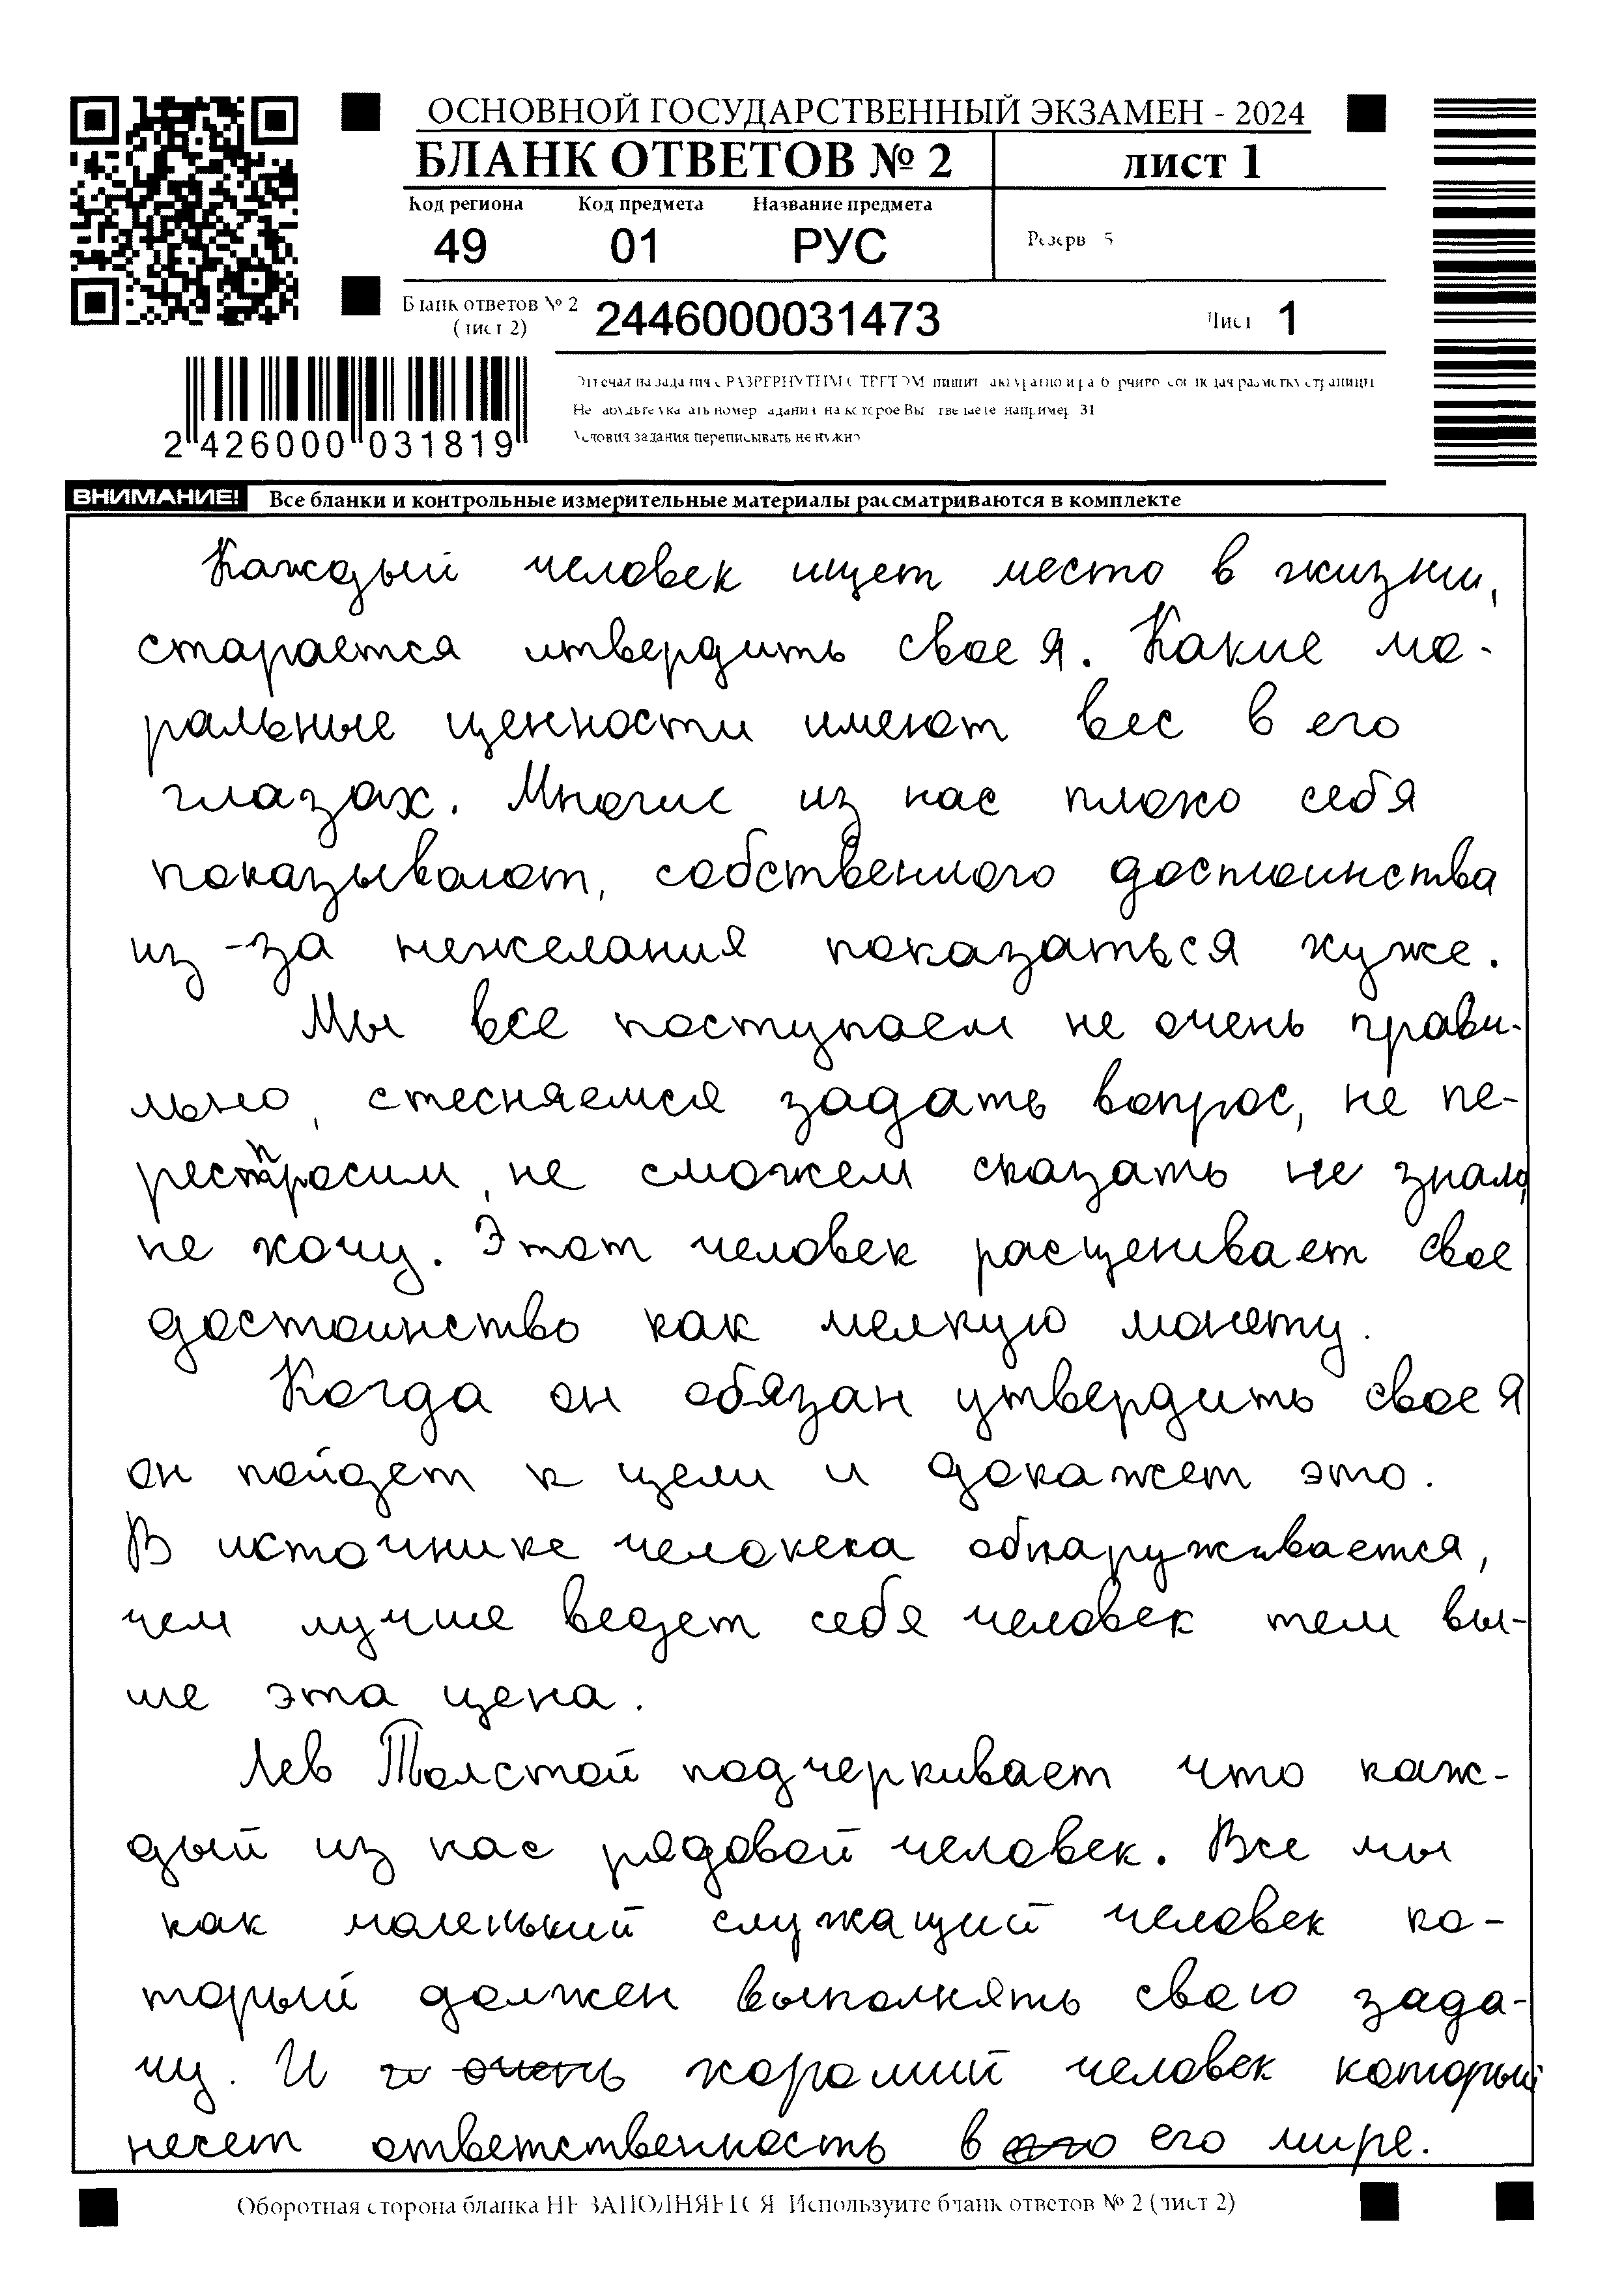 ОСНОВНОЙ ГОСУДАРСТВЕННЫЙ ЭКЗАМЕН - 2024
БЛАНК ОТВЕТОВ № 2 лист 1
Код региона Код предмета Название предмета
49 01 РУС Резерв 5
Бланк ответов № 2 (лист 2) 2446000031473 Лист 1
2 426000 031819
Условия задания переписывать не нужно
ВНИМАНИЕ! Все бланки и контрольные измерительные материалы рассматриваются в комплекте
Каждый человек ищет место в жизни,
старается утвердить свое я. Какие мо-
ральные ценности имеют вес в его
глазах. Многие из нас плохо себя
показывают, собственного достоинства
из-за нежелания показаться хуже.
Мы все поступаем не очень прави-
льно, стесняемся задать вопрос, не пе-
респросим, не сможем сказать не знаю,
не хочу. Этот человек расценивает свое
достоинство как мелкую монету.
Когда он обязан утвердить свое я
он пойдет к цели и докажет это.
В источнике человека обнаруживается,
чем лучше ведет себя человек тем вы-
ше эта цена.
Лев Толстой подчеркивает что каж-
дый из нас рядовой человек. Все мы
как маленький служащий человек ко-
торый должен выполнять свою зада-
чу. И очень хороший человек который
несет ответственность в его мире.
Оборотная сторона бланка НЕ ЗАПОЛНЯЕТСЯ. Используйте бланк ответов № 2 (лист 2)